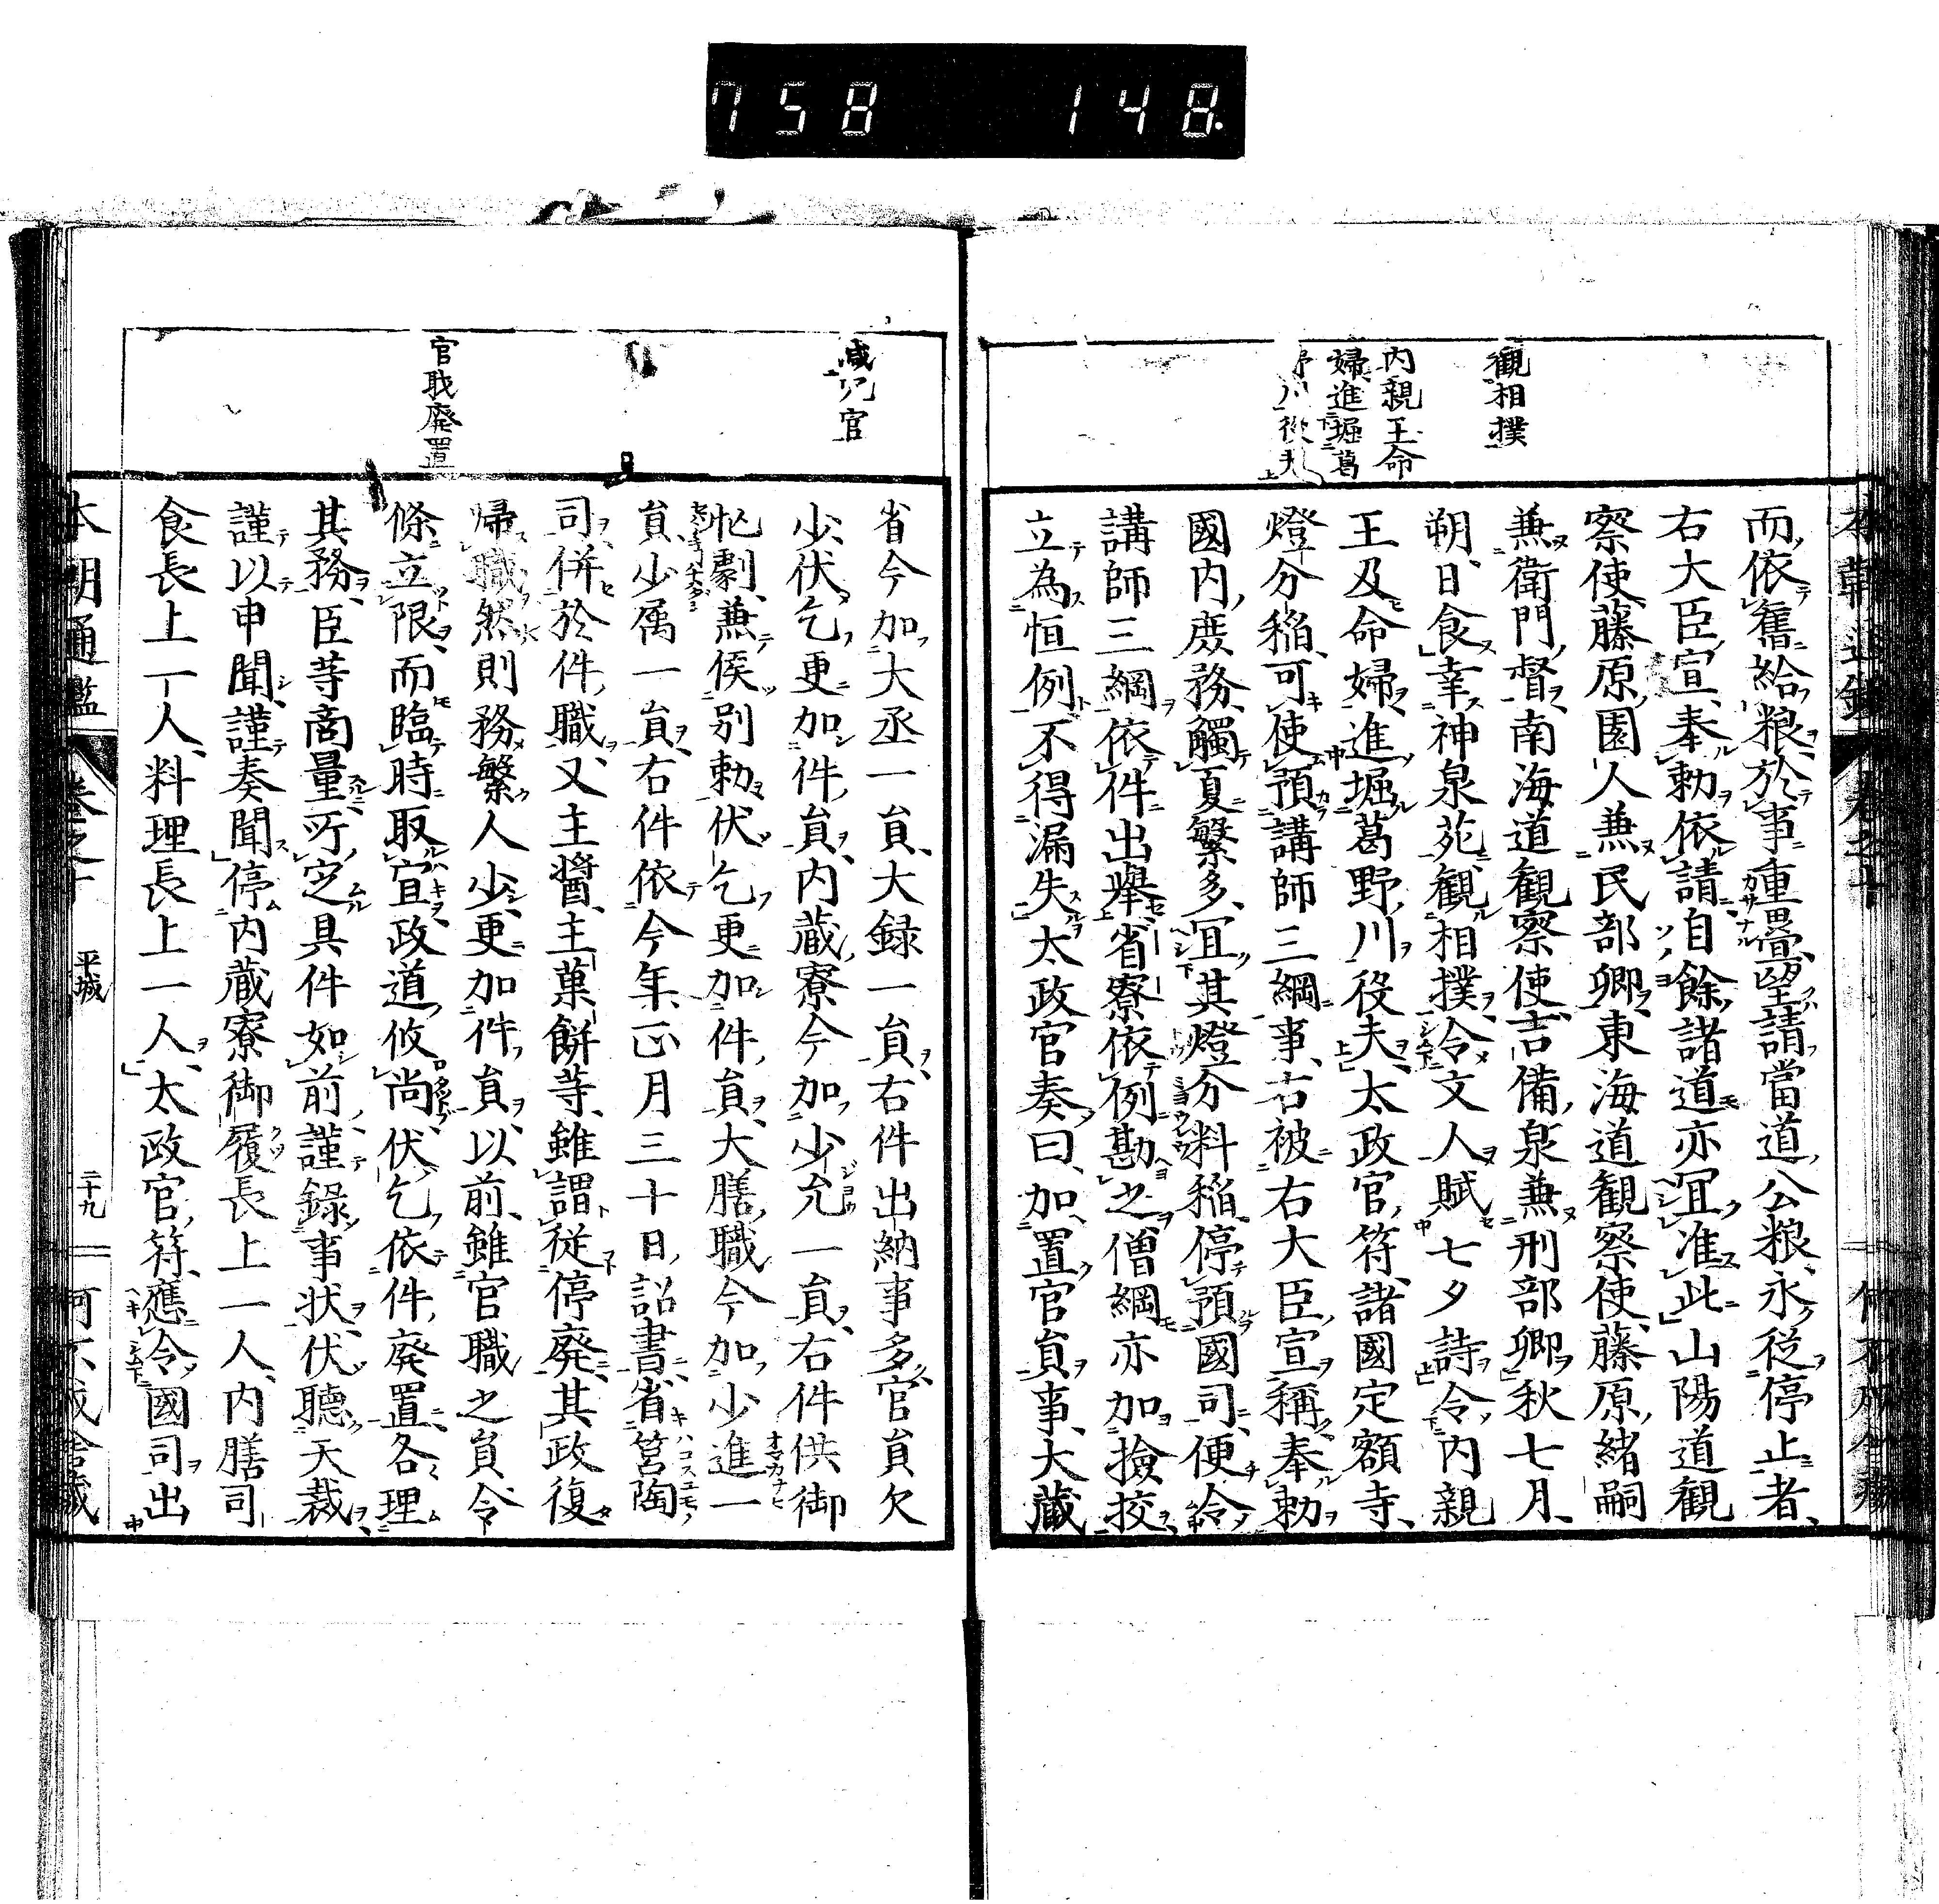 758 148.
觀相撲
内親王命
婦進堀葛
野川役夫
而依舊給粮於事重疊望請當道公粮永從停止者
右大臣宣奉勅依請自餘諸道亦宜准此山陽道觀
察使藤原園人兼民部卿東海道觀察使藤原緒嗣
兼衛門督南海道觀察使吉備泉兼刑部卿秋七月
朔日食幸神泉苑觀相撲令文人賦七夕詩令内親
王及命婦進堀葛野川役夫太政官符諸國定額寺
燈分稲可使預講師三綱事右被右大臣宣稱奉勅
國内庶務觸夏繁多宜其燈分料稲停預國司便令
講師三綱依件出舉省寮依例勘之僧綱亦加撿挍
立為恒例不得漏失太政官奏曰加置官員事大藏
减冗官
官職廢置
省今加大丞一員大録一員右件出納事多官員欠
少伏乞更加件員内藏寮今加少允一員右件供御
忩劇兼候別勅伏乞更加件員大膳職今加少進一
員少属一員右件依今年正月三十日詔書省筥陶
司併於件職又主醤主菓餅等雖謂從停廢其政復
歸職然則務繁人少更加件員以前雖官職之員令
條立限而臨時取宜政道攸尚伏乞依件廢置各理
其務臣等商量所定具件如前謹録事状伏聽天裁
謹以申聞謹奏聞停内藏寮御履長上一人内膳司
食長上一人料理長上一人太政官符應令國司出
本朝通鑑 卷之十 平城 二十九